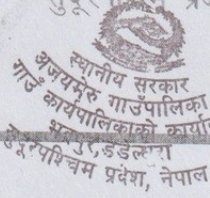 स्थानीय सरकार
अजयमेरु गाउँपालिका
गाउँ कार्यपालिकाको कार्या
सुदूरपश्चिम प्रदेश, नेपाल